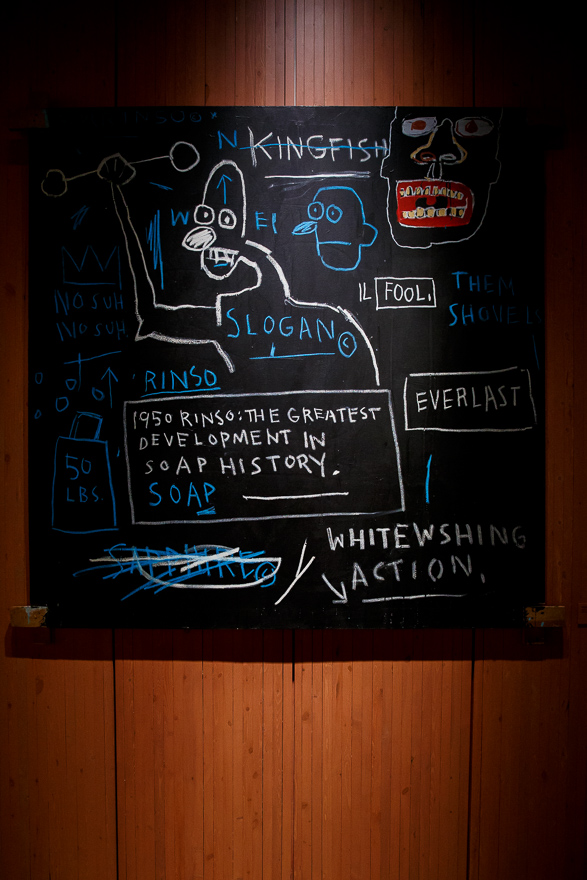 'N KINGFISH
W EI
FOOL.
THEM
SHOVEL
NO SUH
NO SUH
SLOGAN ©
RINSO
EVERLAST
1950 RINSO: THE GREATEST
DEVELOPMENT IN
SOAP HISTORY.
SOAP
50
LBS.
SAPPHIRE ©
WHITEWSHING
ACTION.